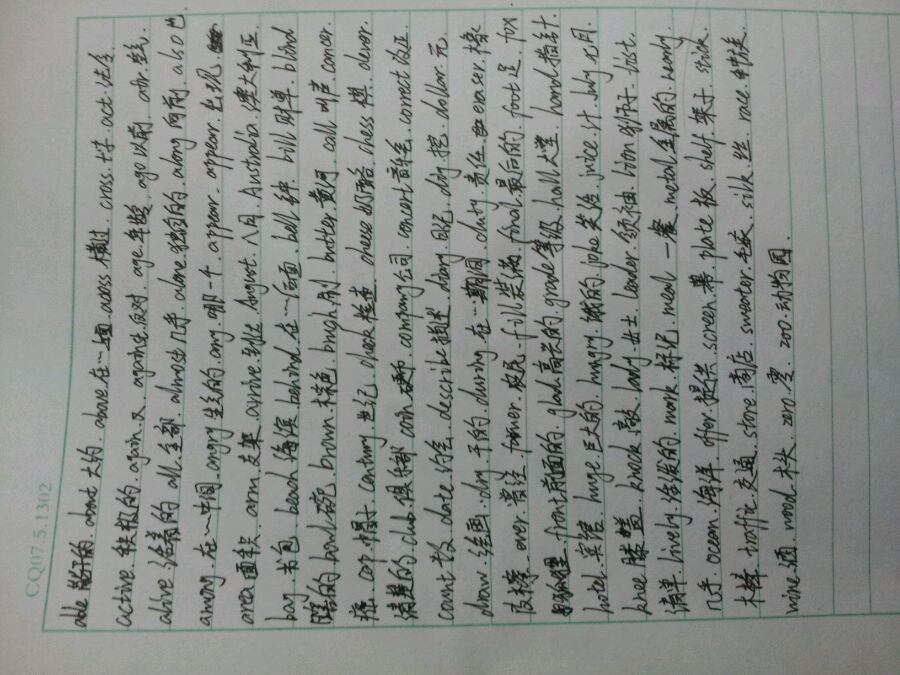 CQ07.5.1302
able 能干的 about 大约 above 在…上面 across 横过 cross 十字 act 法令
active 积极的 again 又 against 反对 age 年龄 ago 以前 air 空气
alive 活着的 all 全部 almost 几乎 alone 独自的 along 向前 also 也
among 在…中间 angry 生气的 any 哪一个 appear appear 出现
area 面积 arm 支架 arrive 到达 August 八月 Australia 澳大利亚
bag 书包 beach 海滨 behind 在…后面 bell 钟 bill 账单 blind
瞎的 bowl 碗 brown 棕色 brush 刷 butter 黄油 call 叫声 cancer
癌 cap 帽子 century 世纪 check 检查 cheese 奶酪 chess 棋 clever
清楚的 club 俱乐部 coin 硬币 company 公司 concert 音乐 correct 改正
count 数 date 约会 describe 描述 diary 日记 dig 挖 dollar 元
draw 绘画 dry 干的 during 在…期间 duty 责任 eraser 橡
皮擦 ever 曾经 farmer 农民 fill 装满 final 最后的 foot 足 fox
front 前面的 glad 高兴的 grade 等级 hall 大堂 hand 指针
hotel 宾馆 huge 巨大的 hungry 饿的 joke 笑话 juice 汁 July 七月
knee 膝盖 knock 敲 lady 女士 leader 领袖 lion 狮子 list
清单 lively 活泼的 mark 标记 meal 一餐 metal 金属的 nearly
几乎 ocean 海洋 offer 提供 screen 幕 plate 板 shelf 架子 stick
木棒 traffic 交通 store 商店 sweater 毛衣 silk 丝 race 种族
wine 酒 wood 木头 zero 零 zoo 动物园